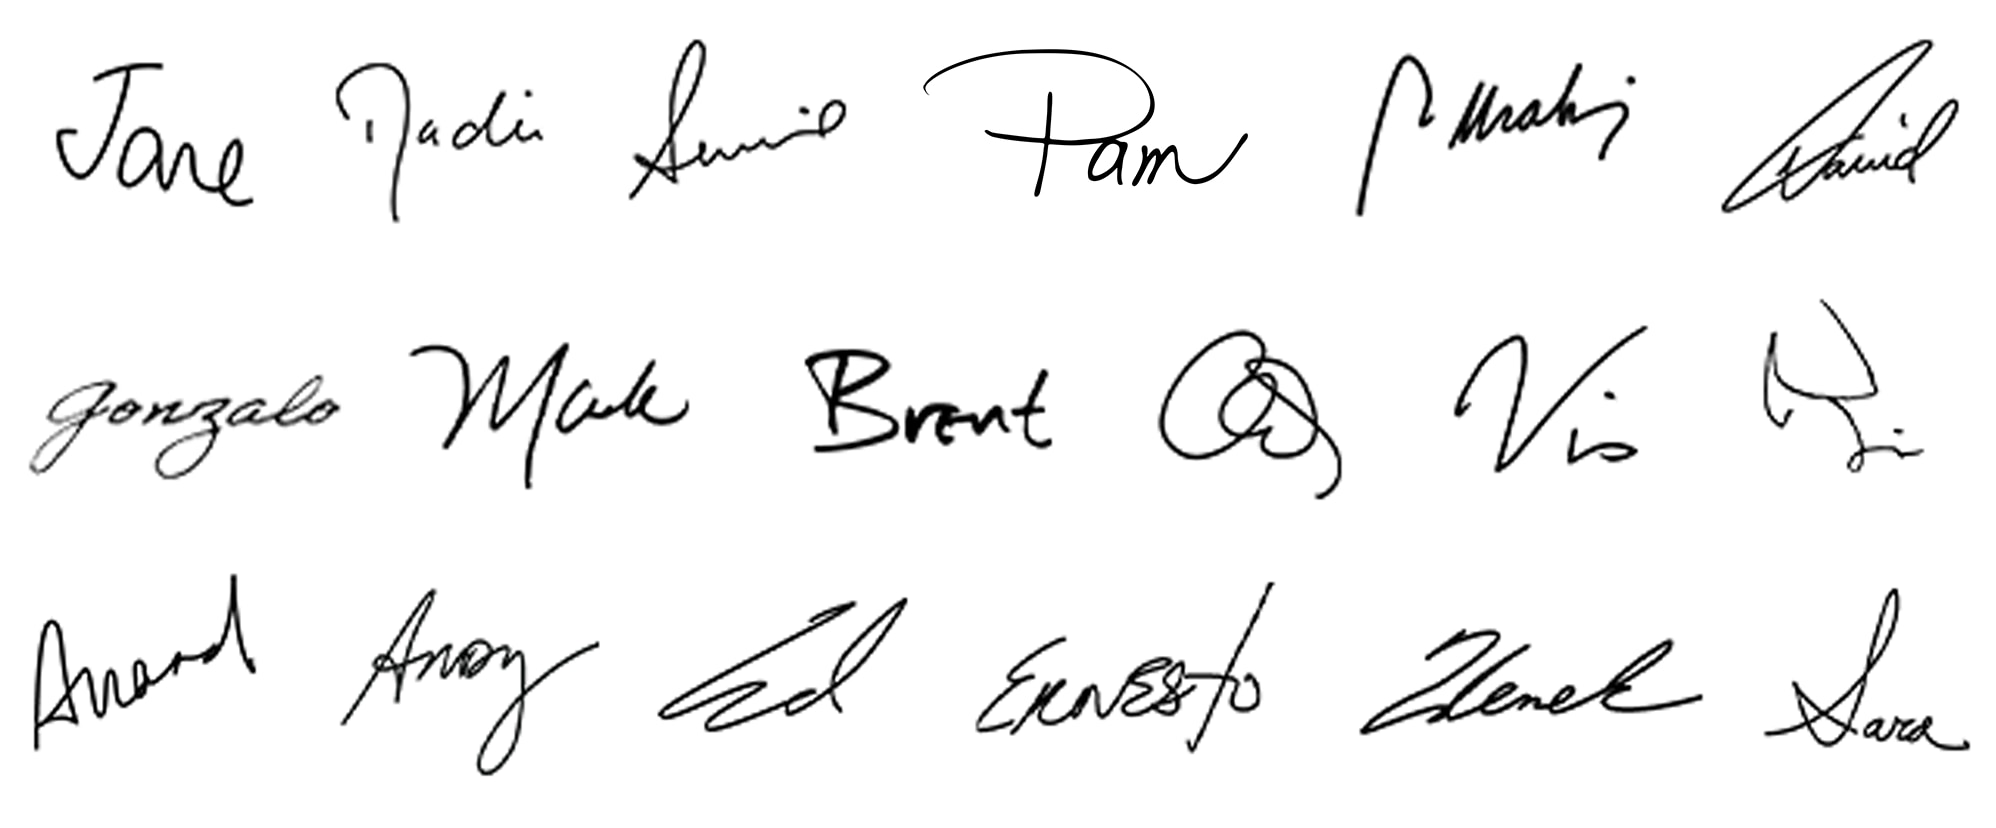 Jane Nadir Pam David
Gonzalo Mark Brent Vis
Anand Andy Ed ERNESTO Zdenek Sara